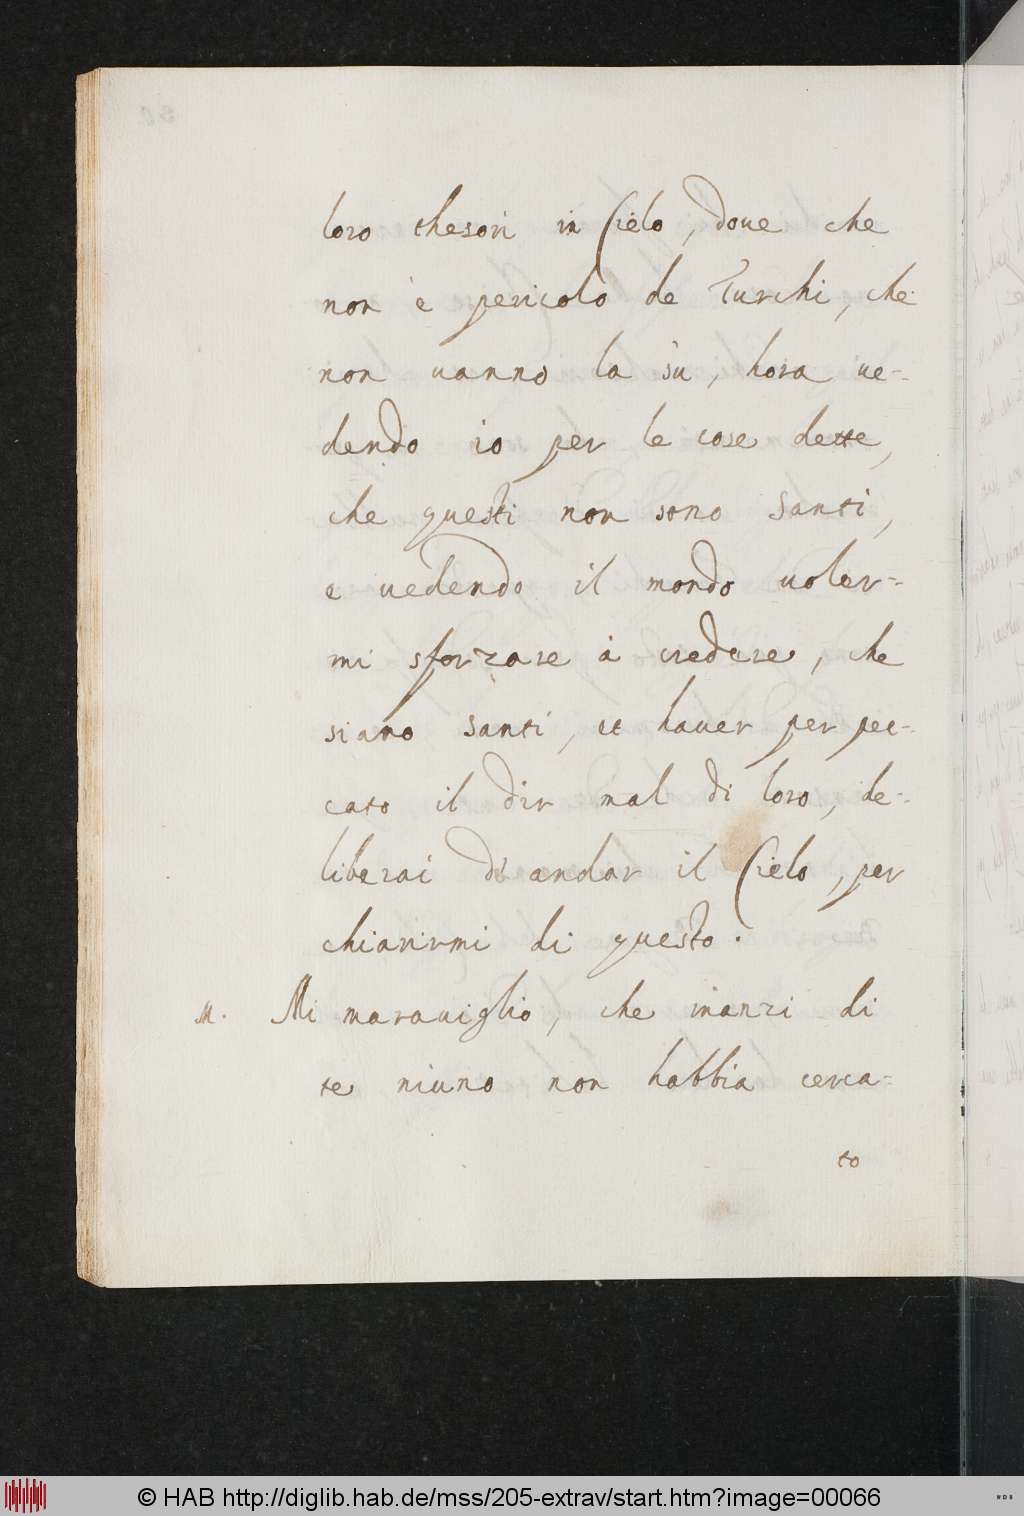 loro thesori in Cielo, doue che
non è pericolo de Turchi, che
non uanno la sù, hora ue-
dendo io per le cose dette,
che questi non sono Santi,
e uedendo il mondo uoler-
mi sforzare à credere, che
siano Santi, et hauer per pec-
cato il dir mal di loro, de-
liberai di andar il Cielo, per
chiarirmi di questo.
M. Mi marauiglio, che inanzi di
te niuno non habbia cerca-
to
© HAB http://diglib.hab.de/mss/205-extrav/start.htm?image=00066